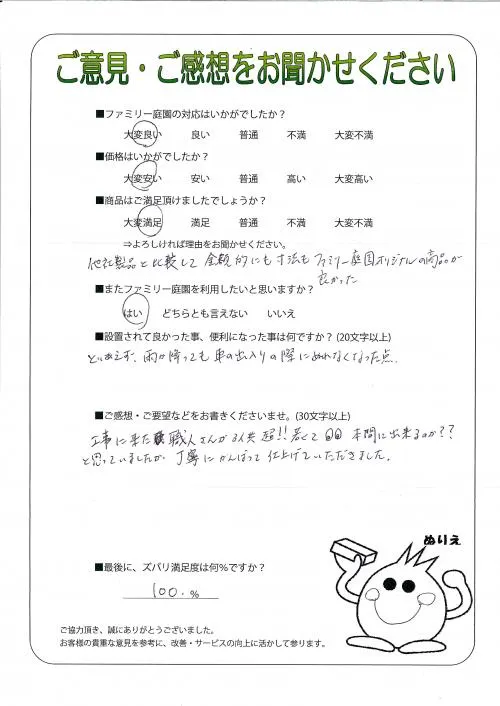 ご意見・ご感想をお聞かせください
■ファミリー庭園の対応はいかがでしたか？
大変良い 良い 普通 不満 大変不満
■価格はいかがでしたか？
大変安い 安い 普通 高い 大変高い
■商品はご満足頂けましたでしょうか？
大変満足 満足 普通 不満 大変不満
⇒よろしければ理由をお聞かせください。
他社製品と比較して金額的にも寸法もファミリー庭園オリジナルの商品が
良かった
■またファミリー庭園を利用したいと思いますか？
はい どちらとも言えない いいえ
■設置されて良かった事、便利になった事は何ですか？(20文字以上)
とりあえず、雨が降っても車の出入りの際にぬれなくなった点.
■ご感想・ご要望などをお書きくださいませ。(30文字以上)
工事に来た職人さんが2人共超!!若くて 本間に出来るのか??
と思っていましたが、丁寧にがんばって仕上げていただきました。
ぬりえ
■最後に、ズバリ満足度は何％ですか？
100. %
ご協力頂き、誠にありがとうございました。
お客様の貴重な意見を参考に、改善・サービスの向上に活かして参ります。